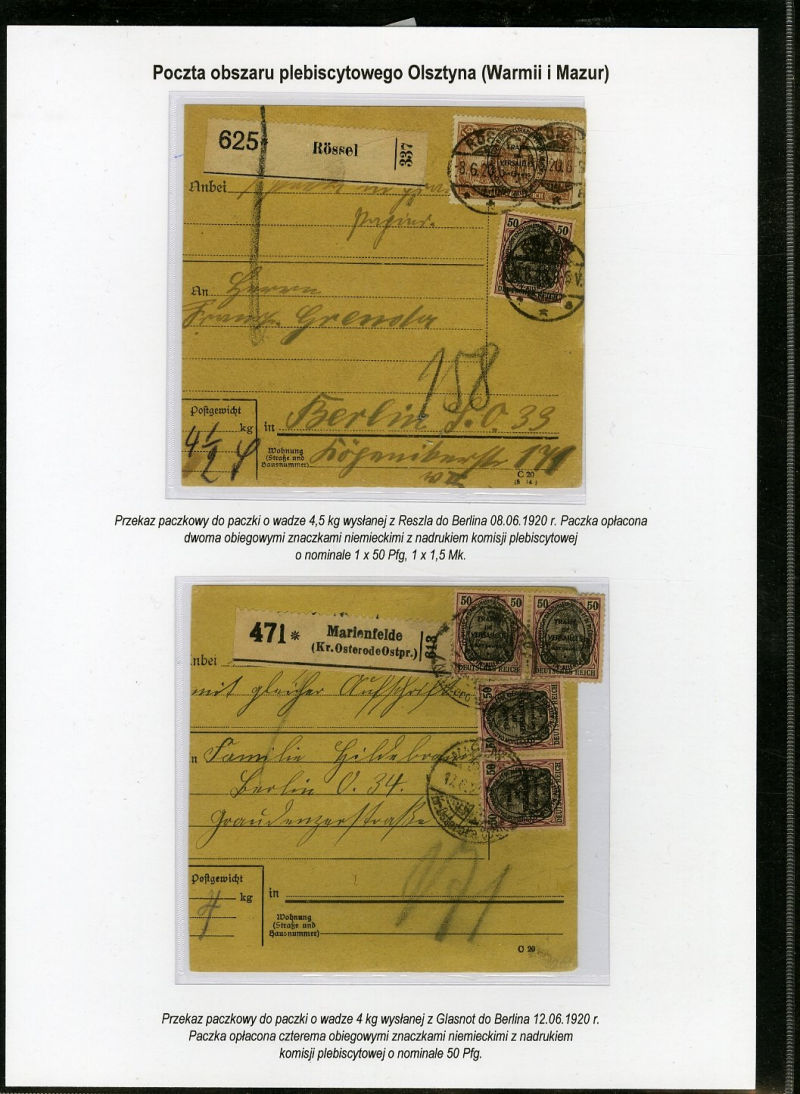 Poczta obszaru plebiscytowego Olsztyna (Warmii i Mazur)
625*
Rössel
337
Anbei
Papier.
An Herrn
Grenda
158
Postgewicht
kg
4 1/2
in Berlin S.O. 33
Wohnung
(Straße und
Hausnummer)
171
C 20
50 50
DEUTSCHES REICH
TRAITÉ
DE
VERSAILLES
Przekaz paczkowy do paczki o wadze 4,5 kg wysłanej z Reszla do Berlina 08.06.1920 r. Paczka opłacona
dwoma obiegowymi znaczkami niemieckimi z nadrukiem komisji plebiscytowej
o nominale 1 x 50 Pfg, 1 x 1,5 Mk.
471*
Marienfelde
(Kr. Osterode Ostpr.)
613
50 50
50 50
TRAITÉ
DE
VERSAILLES
DEUTSCHES REICH
DEUTSCHES REICH
nbei
mit gleicher Aufschrift
n Familie Hildebrandt
Berlin O. 34.
Graudenzerstraße
Postgewicht
4 kg
in
Wohnung
(Straße und
Hausnummer)
C 20
Przekaz paczkowy do paczki o wadze 4 kg wysłanej z Glasnot do Berlina 12.06.1920 r.
Paczka opłacona czterema obiegowymi znaczkami niemieckimi z nadrukiem
komisji plebiscytowej o nominale 50 Pfg.